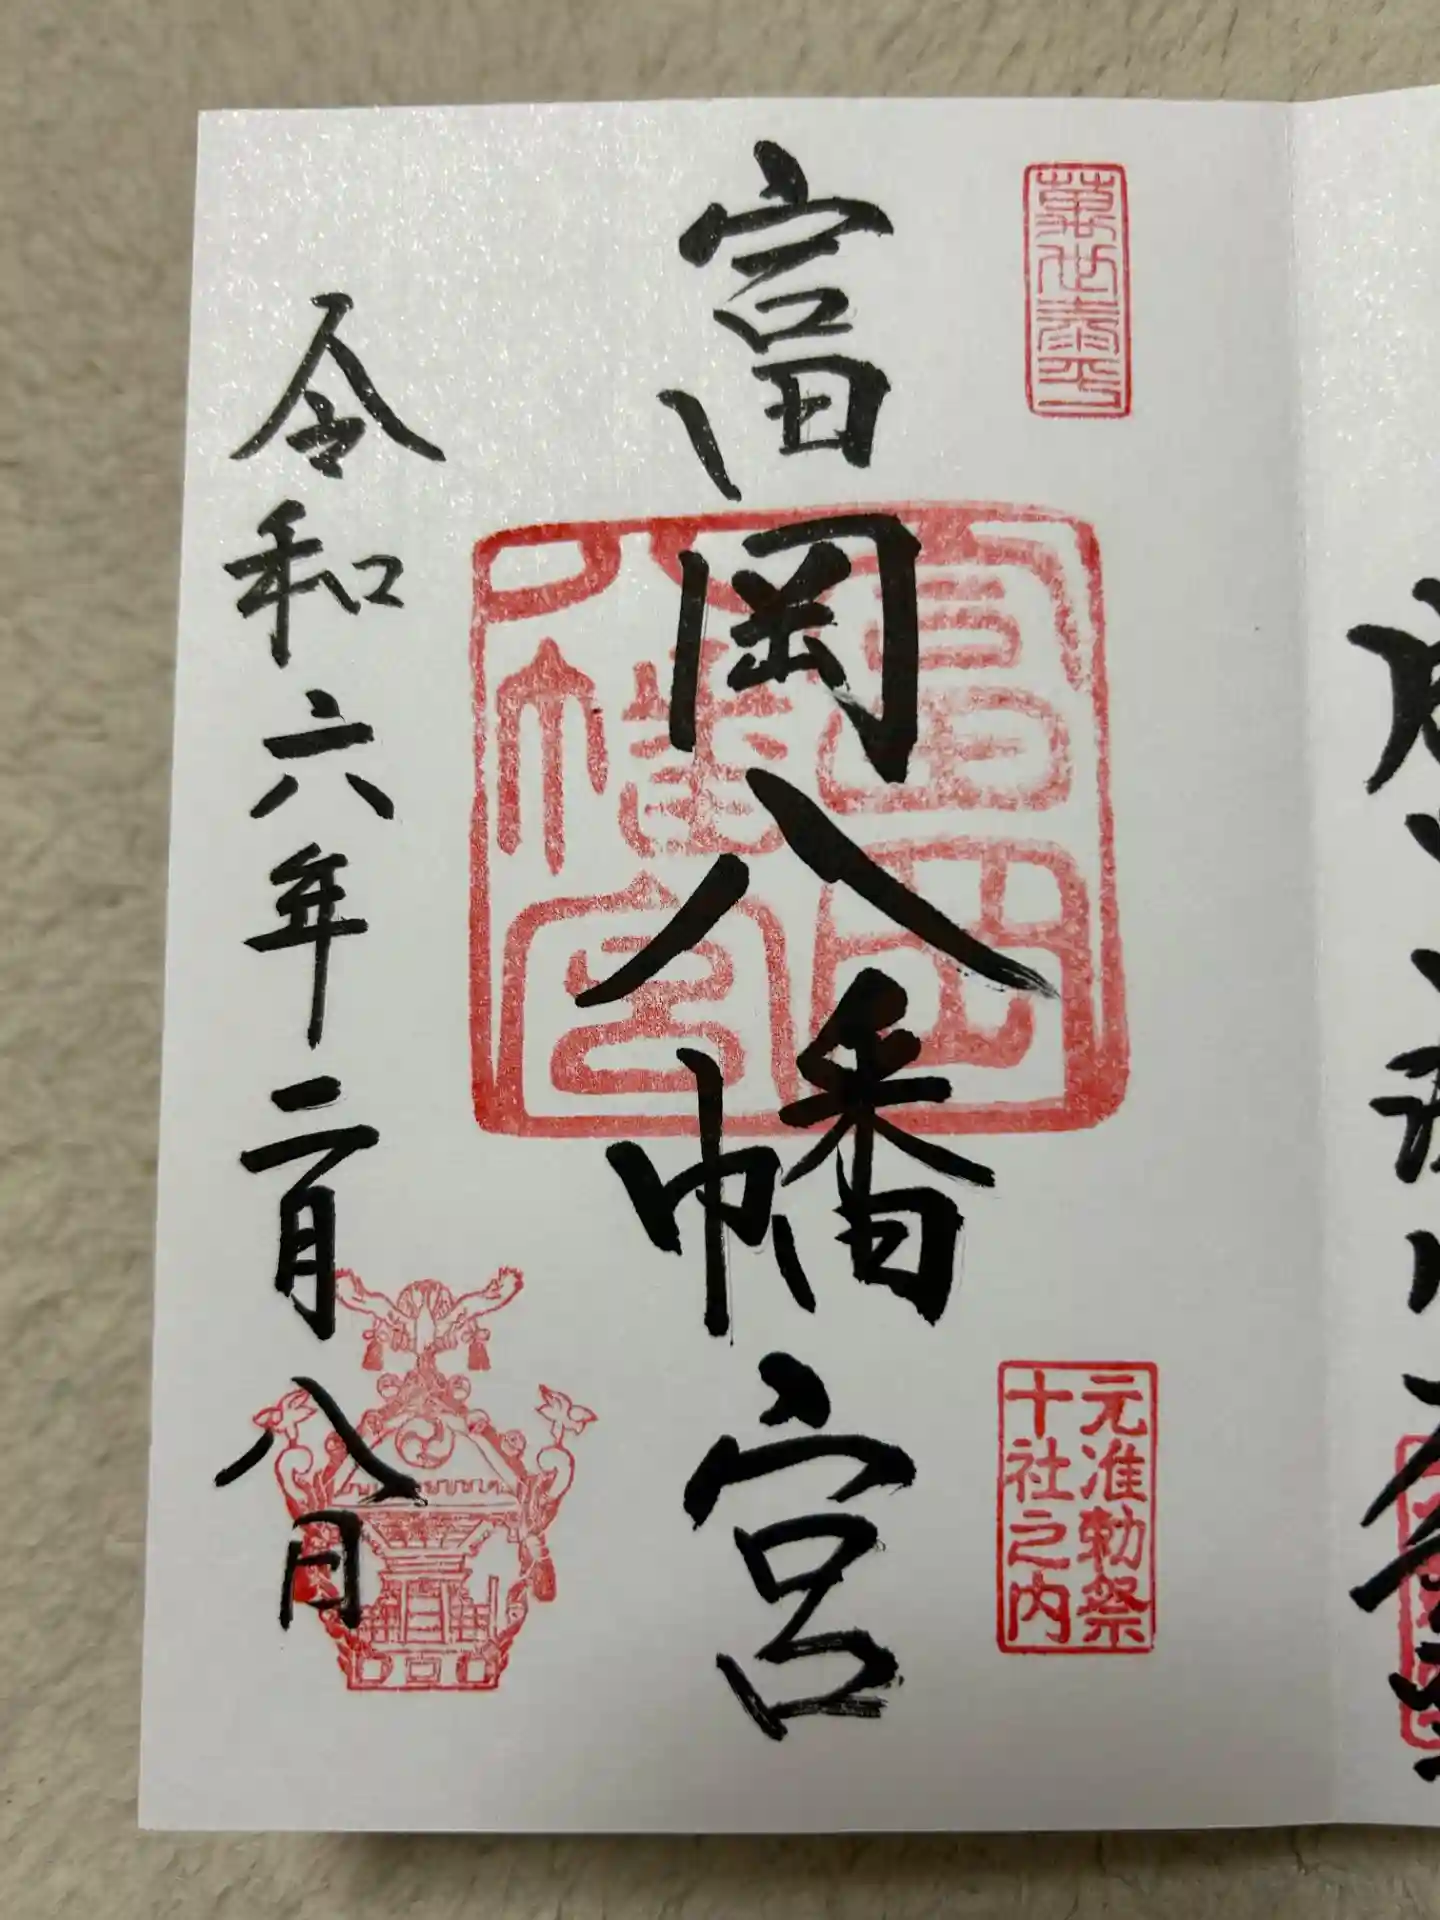 萬世泰平
元准勅祭
十社之内
富岡八幡宮
富岡
八幡宮
令和六年二月八日